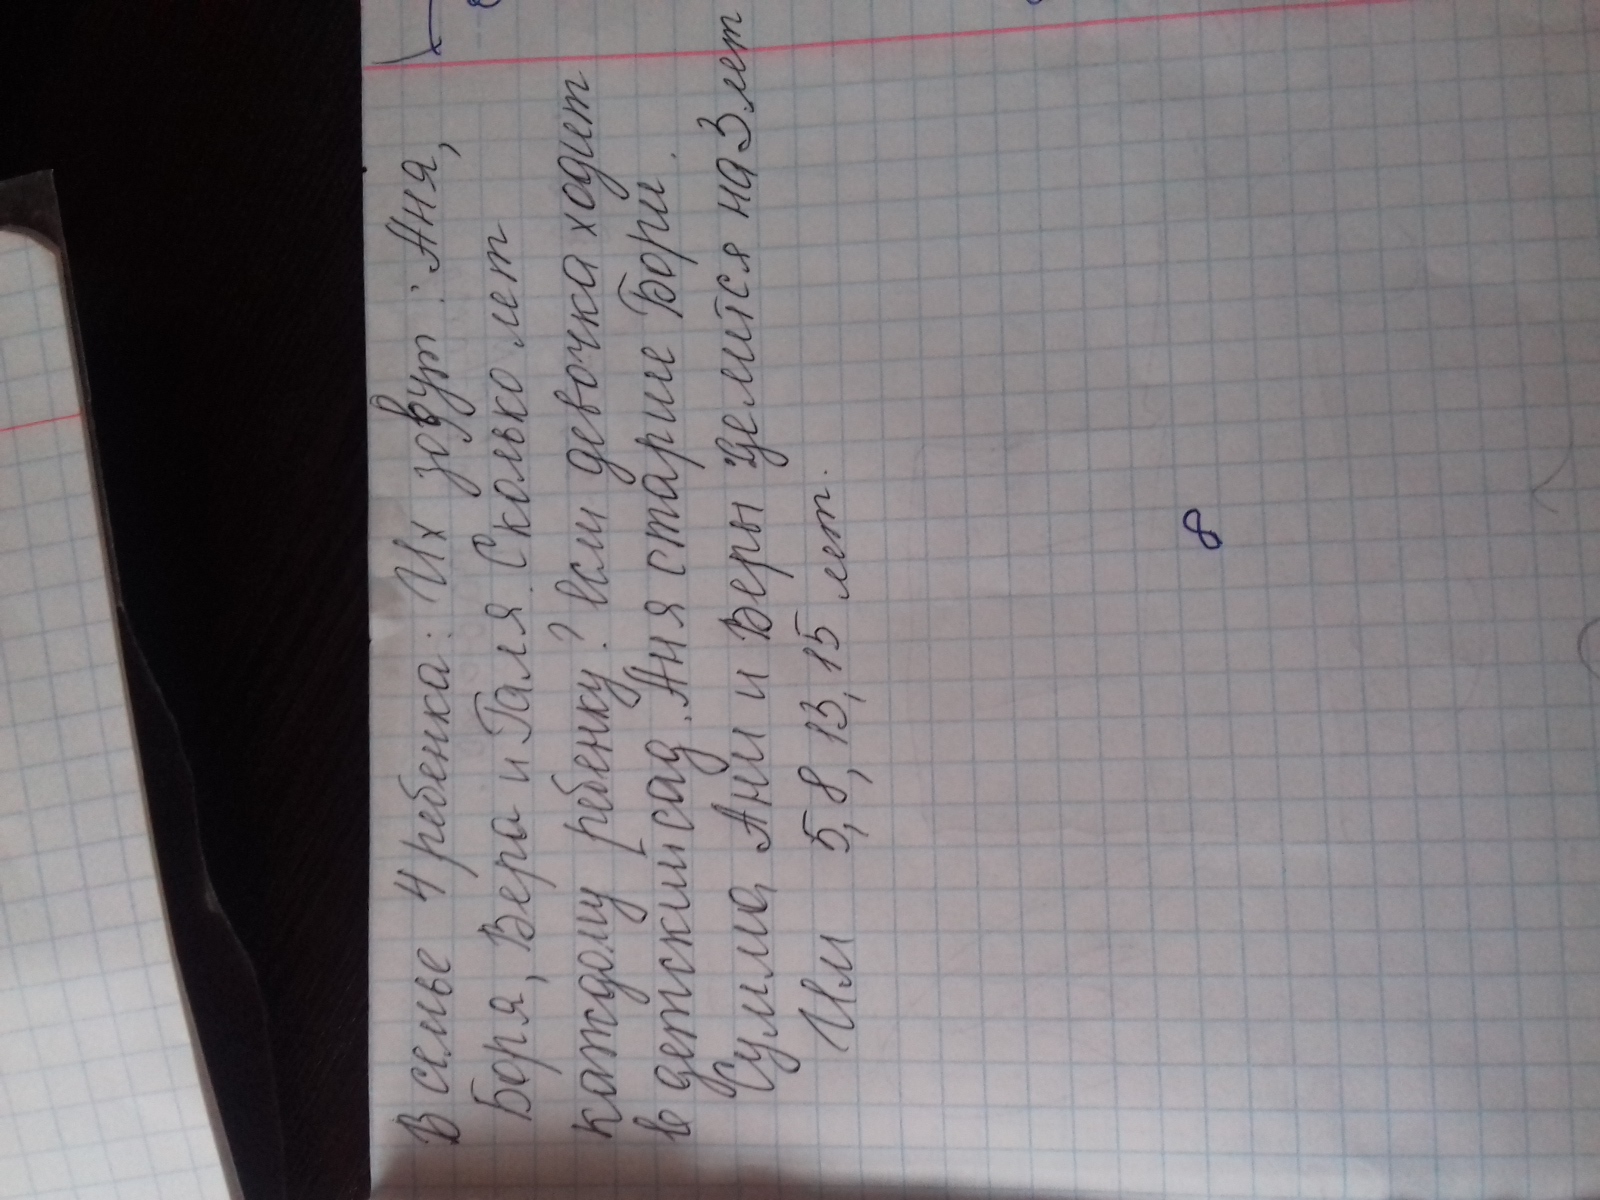 В семье 4 ребенка: Их зовут: Аня,
Боря, Вера и Галя. Сколько лет
каждому ребенку? если девочка ходит
в детский сад. Аня старше Бори.
Сумма Ани и Веры делится на 3 лет
Им 5, 8, 13, 15 лет.
8